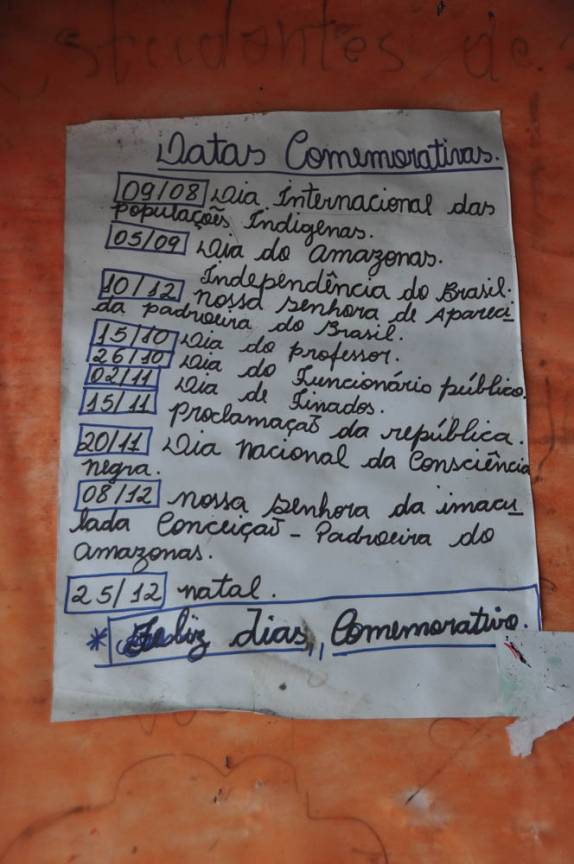 Estudantes de
Datas Comemorativas.
09/08 Dia Internacional das
populações Indígenas.
05/09 Dia do Amazonas.
Independência do Brasil.
10/12 nossa senhora de Apareci
da padroeira do Brasil.
15/10 Dia do professor.
26/10 Dia do Funcionário público.
02/11 Dia de Finados.
15/11 proclamação da república.
20/11 Dia nacional da Consciência
negra.
08/12 nossa senhora da imacu
lada Conceição - Padroeira do
amazonas.
25/12 natal.
* Feliz Dias,, Comemorativo.